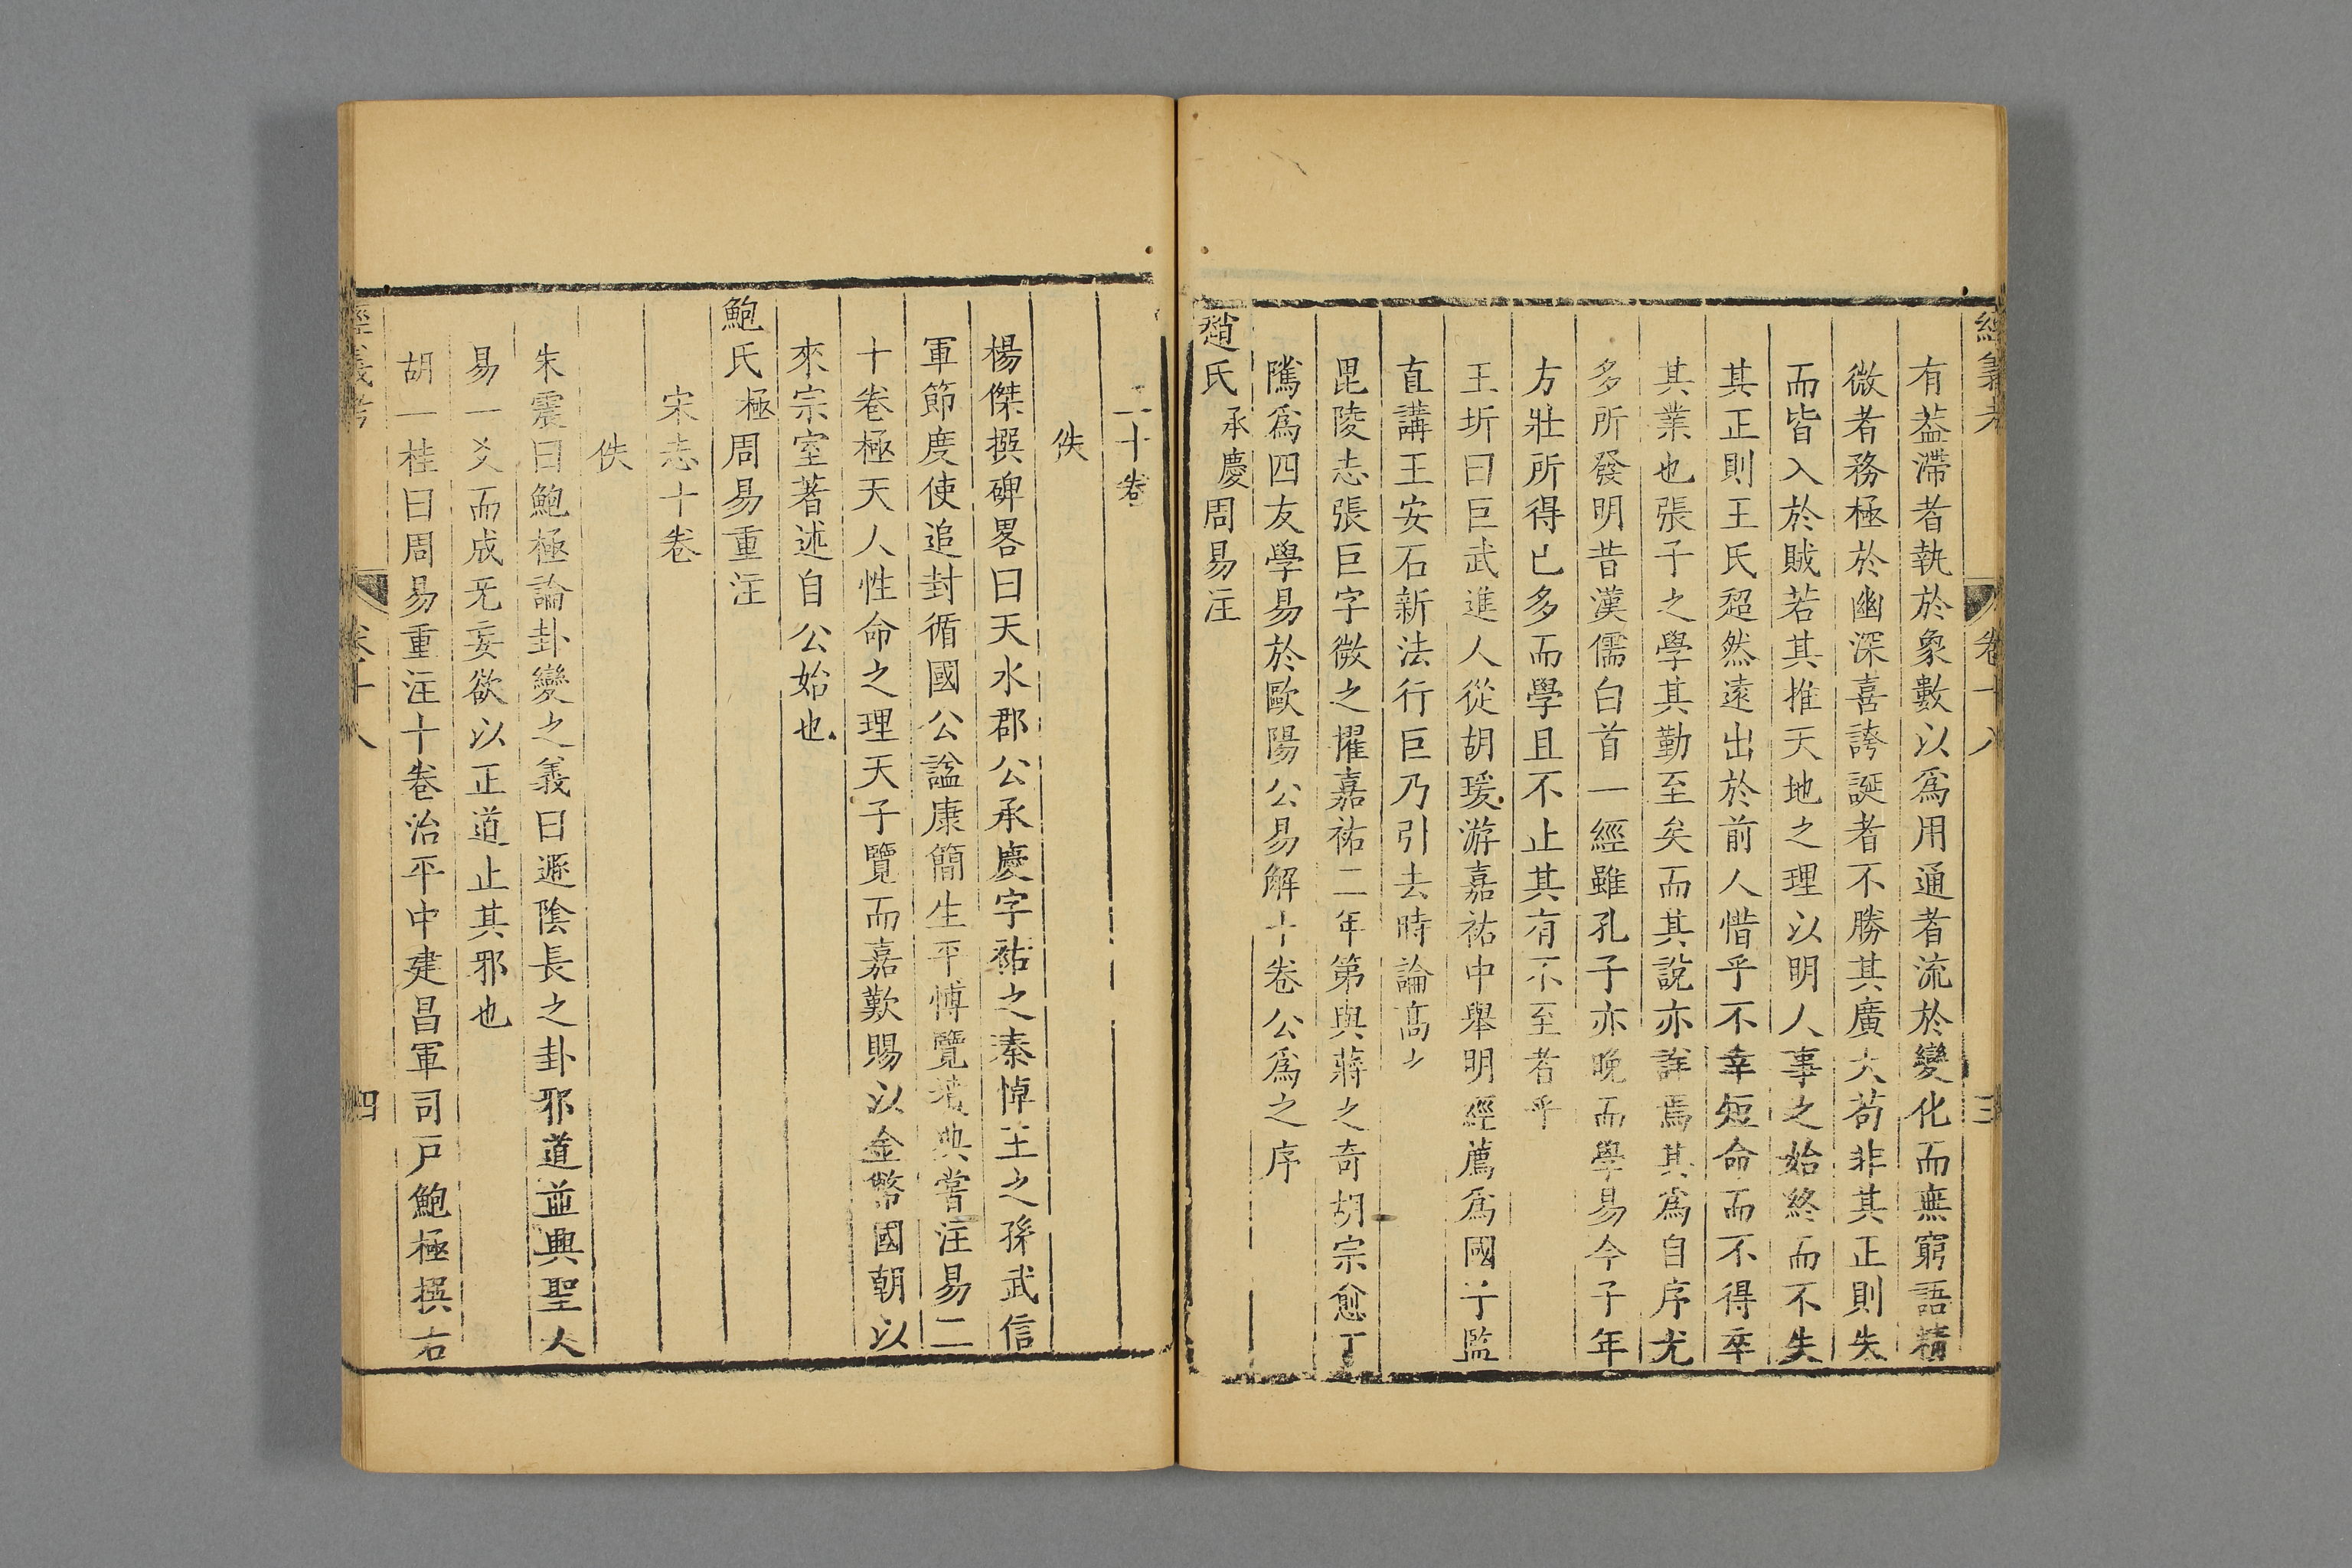 經義考 卷十八 三
有葢滯者執於象數以爲用通者流於變化而無窮語精
微者務極於幽深喜誇誕者不勝其廣大苟非其正則失
而皆入於賊若其推天地之理以明人事之始終而不失
其正則王氏超然遠出於前人惜乎不幸短命而不得卒
其業也張子之學其勤至矣而其說亦詳焉其爲自序尤
多所發明昔漢儒白首一經雖孔子亦晚而學易今子年
方壯所得已多而學且不止其有不至者乎
王圻曰巨武進人從胡瑗游嘉祐中舉明經薦爲國子監
直講王安石新法行巨乃引去時論高之
毘陵志張巨字微之擢嘉祐二年第與蔣之奇胡宗愈丁
隲爲四友學易於歐陽公易解十卷公爲之序
趙氏承慶周易注
二十卷
佚
楊傑撰碑畧曰天水郡公承慶字祐之秦悼王之孫武信
軍節度使追封循國公謚康簡生平博覽墳典嘗注易二
十卷極天人性命之理天子覽而嘉歎賜以金幣國朝以
來宗室著述自公始也
鮑氏極周易重注
宋志十卷
佚
朱震曰鮑極論卦變之義曰遯陰長之卦邪道並興聖人
易一爻而成无妄欲以正道止其邪也
胡一桂曰周易重注十卷治平中建昌軍司戸鮑極撰右
經義考 卷十八 四